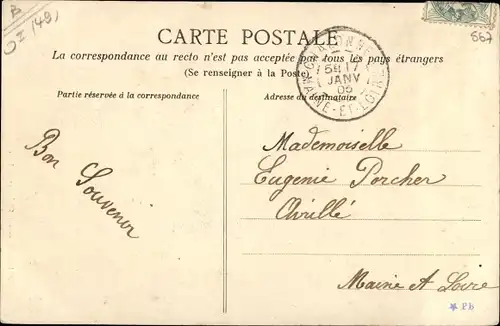 B
OZ (49)
567
CARTE POSTALE
La correspondance au recto n'est pas acceptée par tous les pays étrangers
(Se renseigner à la Poste)
Partie réservée à la correspondance
Adresse du destinataire
JANV
05
MAINE-ET-LOIRE
Bon
Souvenir
Mademoiselle
Eugenie Porcher
Avrillé
Maine et Loire